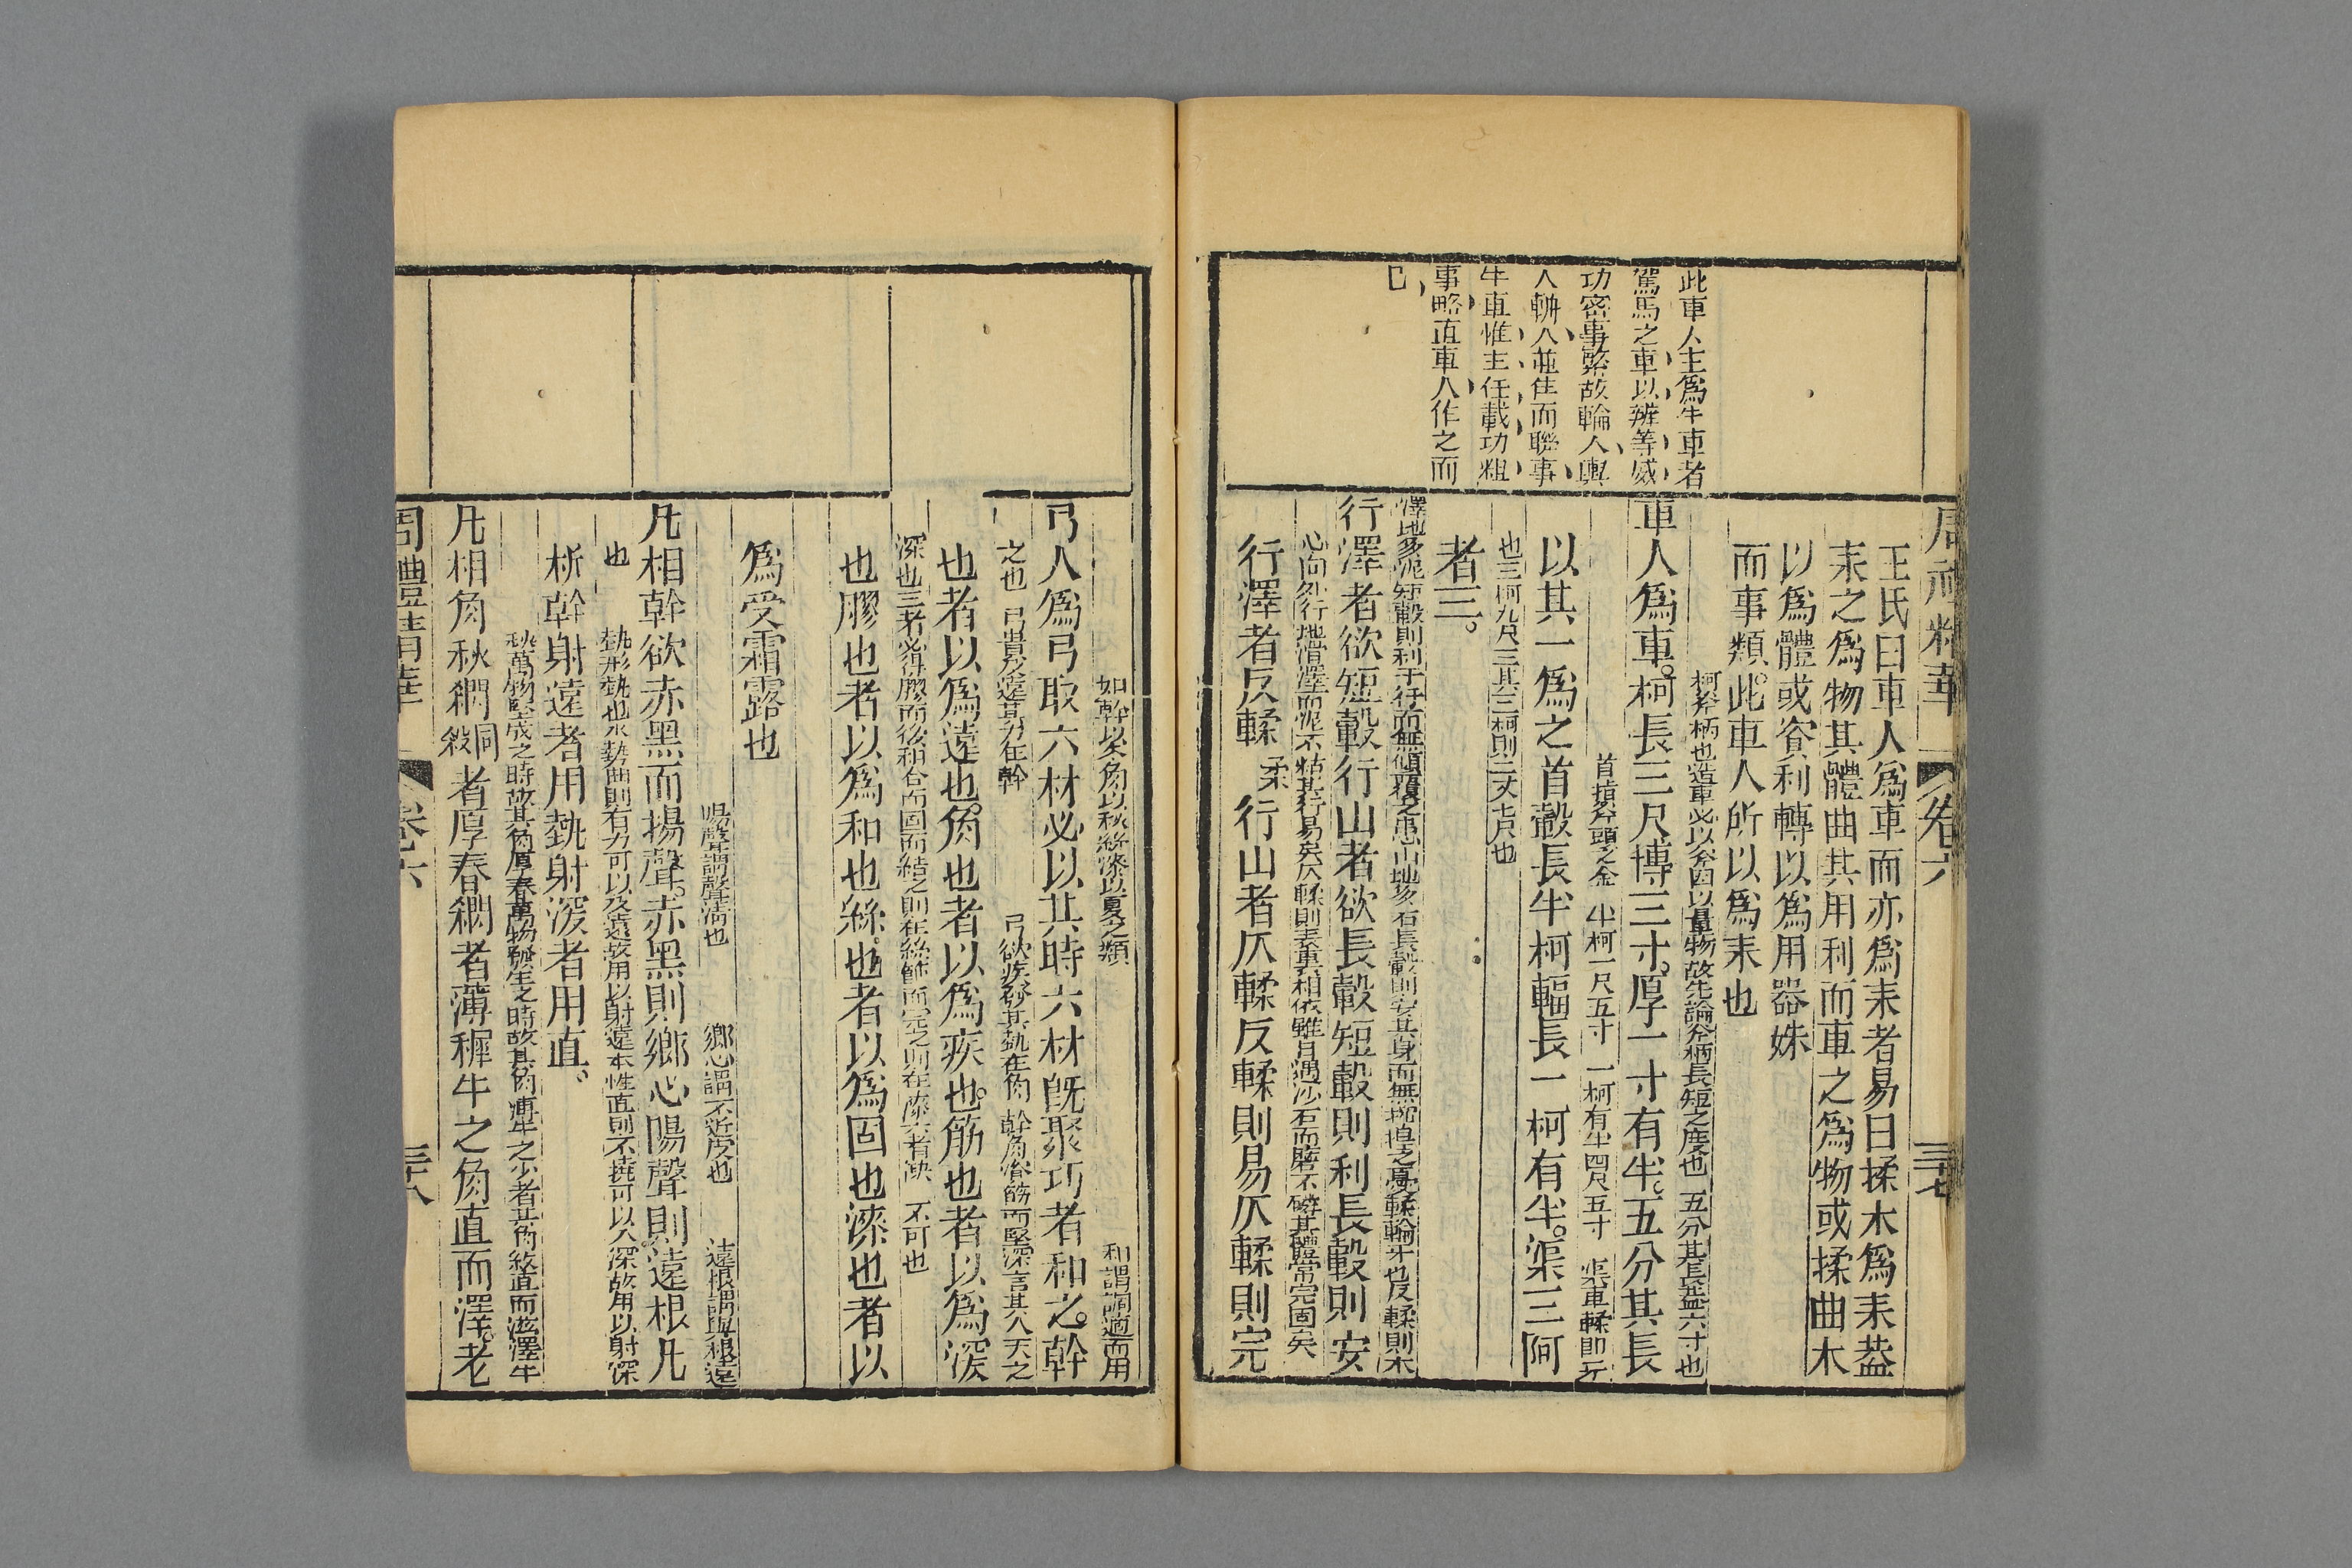 周禮精華
卷六
三十七
王氏曰車人爲車而亦爲耒者易曰揉木爲耒葢
耒之爲物其體曲其用利而車之爲物或揉曲木
以爲體或資利轉以爲用器姝
而事類此車人所以爲耒也
此車人主爲牛車者
駕馬之車以辨等威
功密事繁故輪人輿
人輈人並住而聯事
牛車惟主任載功粗
事略直車人作之而
已
柯斧柄也造車必以斧因以量物故先論斧柄長短之度也 五分其長葢六寸也
車人爲車柯長三尺博三寸厚一寸有半五分其長
首摃斧頭之金 半柯一尺五寸 一柯有半四尺五寸 渠車輮即牙
以其一爲之首轂長半柯輻長一柯有半渠三阿
也三柯九尺三其三柯則二丈七尺也
者三
澤地多泥短轂則利于行而無傾覆之患山地多石長轂則安其身而無摇揘之憂輮輪牙也反輮則木
行澤者欲短轂行山者欲長轂短轂則利長轂則安
心向外行地滑澤而泥不粘其行易矣仄輮則表裏相依雖日遇沙石而磨不磷其體常完固矣
行澤者反輮柔行山者仄輮反輮則易仄輮則完
如幹以冬角以秋絲漆以夏之類 和謂調適而用
弓人爲弓取六材必以其時六材旣聚巧者和之幹
之也 弓貴發遠其力在幹 弓欲疾發其埶在角 幹角湌筋而堅深言其入天之
也者以爲遠也角也者以爲疾也筋也者以爲深
深也三者必得膠而後和合而固而結之則在絲餙而完之則在漆六者缺一不可也
也膠也者以爲和也絲也者以爲固也漆也者以
爲受霜露也
陽聲謂聲清也 鄉心謂不近皮也 遠根謂與根遠
凡相幹欲赤黑而揚聲赤黑則鄉心陽聲則遠根凡
也 埶形埶也木勢曲則有力可以及遠故用以射遠本性直則不撓可以入深故用以射深
析幹射遠者用埶射深者用直
秋萬物堅成之時故其角厚春萬物發生之時故其角薄牛之少者其角紋直而滋澤牛
凡相角秋䦨同殺者厚春䦨者薄穉牛之角直而澤老
周禮精華
卷六
三十八